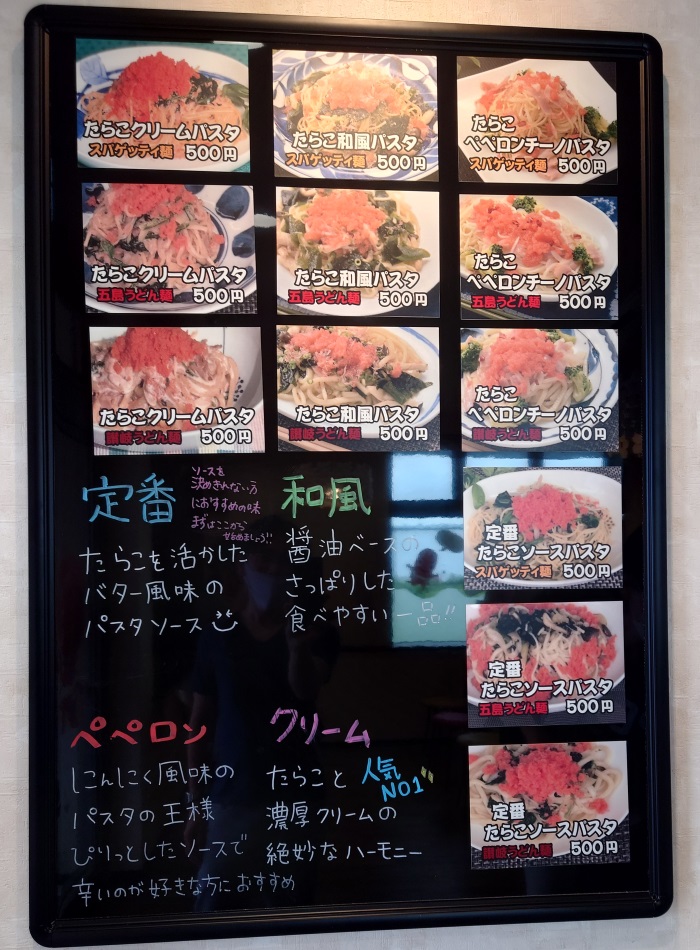 たらこクリームパスタ
スパゲッティ麺 500円
たらこ和風パスタ
スパゲッティ麺 500円
たらこ
ペペロンチーノパスタ
スパゲッティ麺 500円
たらこクリームパスタ
五島うどん麺 500円
たらこ和風パスタ
五島うどん麺 500円
たらこ
ペペロンチーノパスタ
五島うどん麺 500円
たらこクリームパスタ
讃岐うどん麺 500円
たらこ和風パスタ
讃岐うどん麺 500円
たらこ
ペペロンチーノパスタ
讃岐うどん麺 500円
定番
ソースを
決めきれない方
におすすめの味
まずはここから
せめましょう!!
たらこを活かした
バター風味の
パスタソース
和風
醤油ベースの
さっぱりした
食べやすい一品!!
定番
たらこソースパスタ
スパゲッティ麺 500円
定番
たらこソースパスタ
五島うどん麺 500円
定番
たらこソースパスタ
讃岐うどん麺 500円
ペペロン
にんにく風味の
パスタの王様
ぴりっとしたソースで
辛いのが好きな方におすすめ
クリーム
人気
NO1
たらこと
濃厚クリームの
絶妙なハーモニー